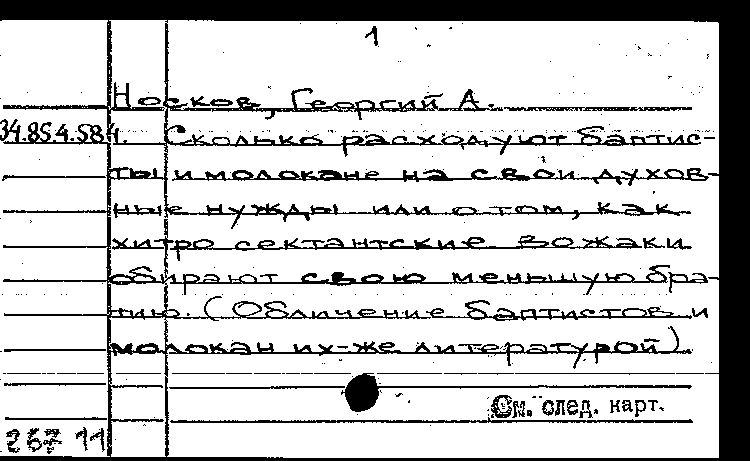 1
Носков, Георгий А.
34.85.4.584. Сколько расходуют баптис-
ты и молокане на свои духов-
ные нужды или о том, как
хитро сектантские вожаки
обирают свою меньшую бра-
тию. (Обличение баптистов и
молокан их-же литературой)
См. след. карт.
267 11